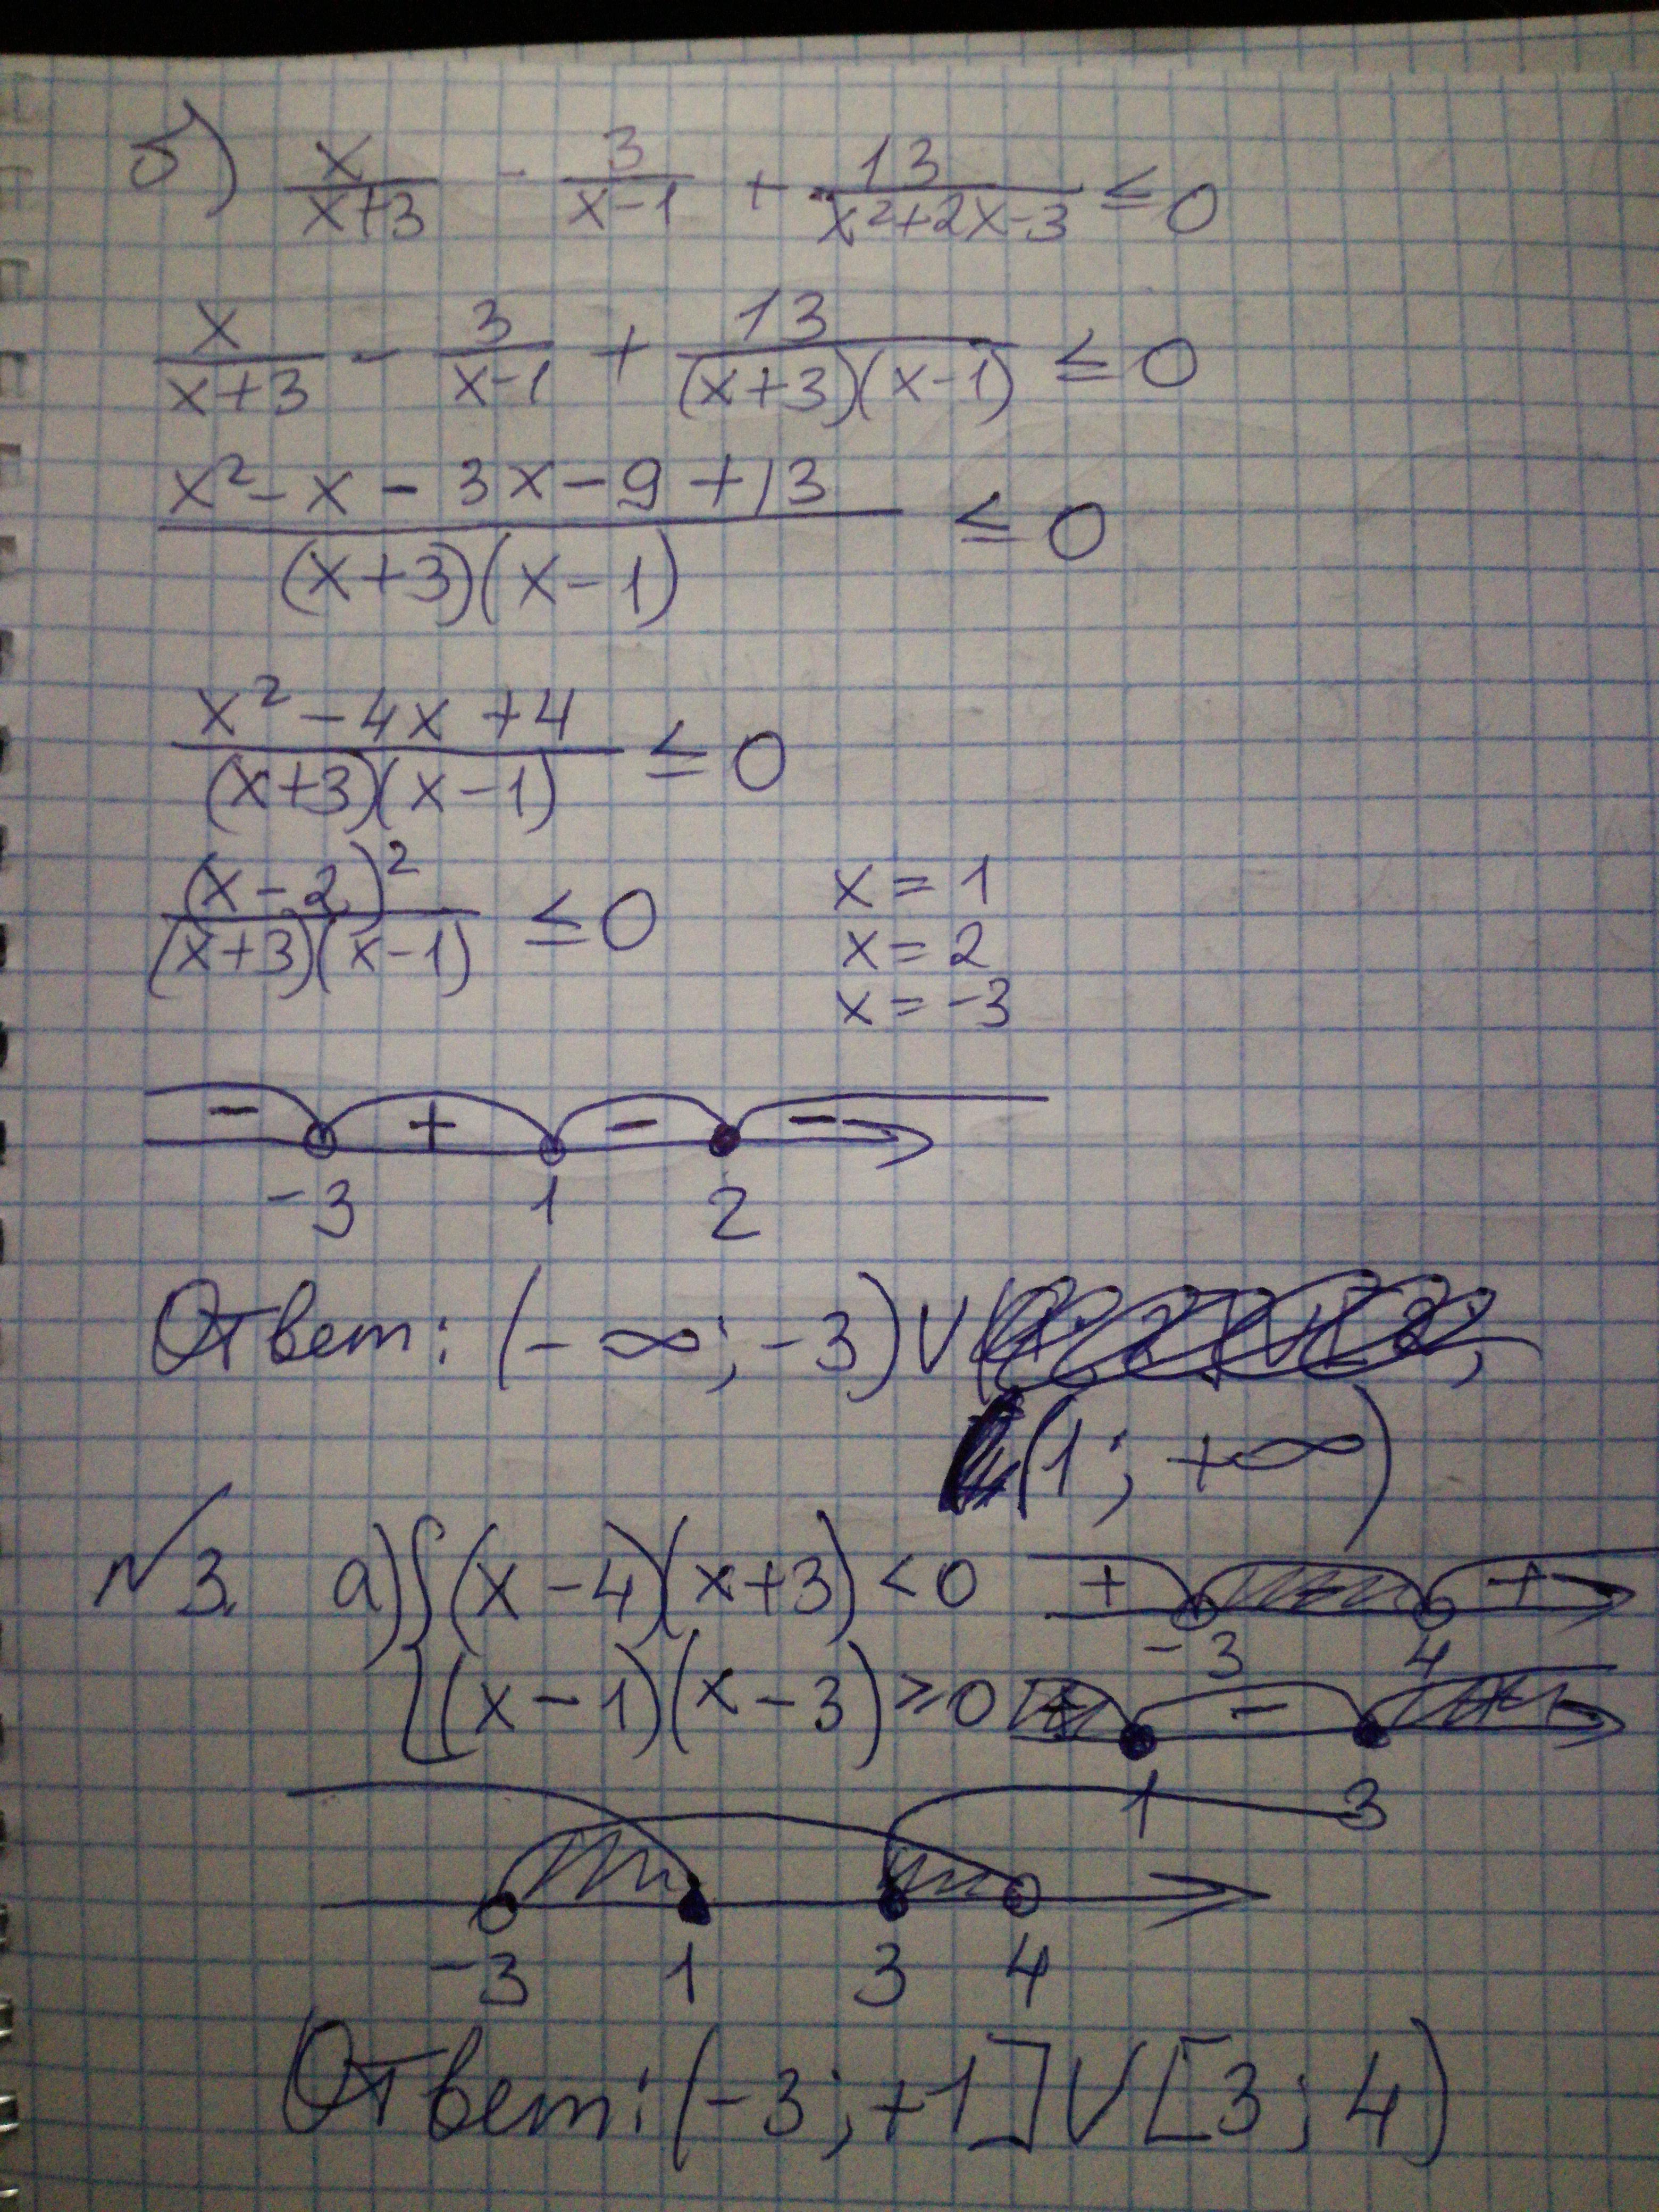 б) x/(x+3) - 3/(x-1) + 13/(x²+2x-3) ≤ 0
x/(x+3) - 3/(x-1) + 13/((x+3)(x-1)) ≤ 0
(x² - x - 3x - 9 + 13)/((x+3)(x-1)) ≤ 0
(x² - 4x + 4)/((x+3)(x-1)) ≤ 0
(x-2)²/((x+3)(x-1)) ≤ 0
x = 1
x = 2
x = -3
- + - -
-3 1 2
Ответ: (-∞; -3) ∪
(1; +∞)
№3. а) { (x-4)(x+3) < 0
+ - +
-3 4
(x-1)(x-3) ≥ 0
+ - +
1 3
-3 1 3 4
Ответ: (-3; +1] ∪ [3; 4)